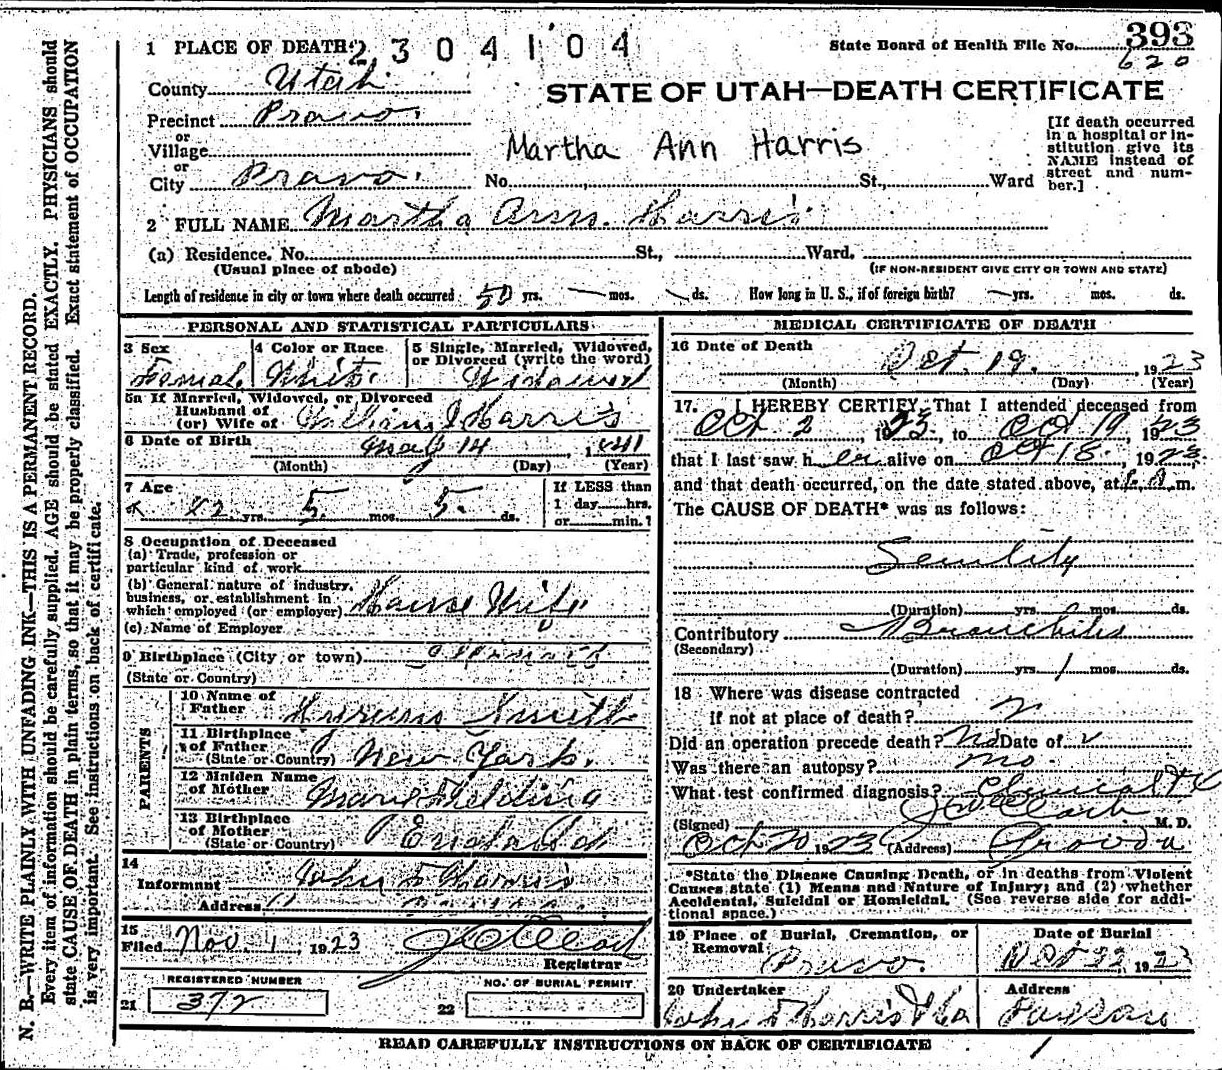 1 PLACE OF DEATH 2304104
State Board of Health File No. 393
620
County Utah
STATE OF UTAH—DEATH CERTIFICATE
Precinct Provo.
or
Village
or
City Provo.
Martha Ann Harris
No. , St., Ward
[If death occurred
in a hospital or in-
stitution give its
NAME instead of
street and num-
ber.]
2 FULL NAME Martha Ann Harris
(a) Residence. No. St., Ward.
(Usual place of abode)
(IF NON-RESIDENT GIVE CITY OR TOWN AND STATE)
Length of residence in city or town where death occurred 50 yrs. — mos. ds. How long in U. S., if of foreign birth? — yrs. mos. ds.
PERSONAL AND STATISTICAL PARTICULARS
3 Sex
Female
4 Color or Race
White
5 Single, Married, Widowed,
or Divorced (write the word)
Widowed
5a If Married, Widowed, or Divorced
Husband of
(or) Wife of William J Harris
6 Date of Birth May 14, 1841
(Month) (Day) (Year)
7 Age
82 yrs. 5 mos. 5 ds.
If LESS than
1 day hrs.
or min.?
8 Occupation of Deceased
(a) Trade, profession or
particular kind of work
(b) General nature of industry,
business, or establishment in
which employed (or employer) House Wife
(c) Name of Employer
9 Birthplace (City or town) Illinois
(State or Country)
PARENTS
10 Name of
Father Hyrum Smith
11 Birthplace
of Father
(State or Country) New York.
12 Maiden Name
of Mother Mary Fielding
13 Birthplace
of Mother
(State or Country) England
14
Informant John F Harris
Address
15
Filed Nov. 1, 1923
Registrar
REGISTERED NUMBER
21 372
NO. OF BURIAL PERMIT
22
MEDICAL CERTIFICATE OF DEATH
16 Date of Death
Oct. 19. , 1923
(Month) (Day) (Year)
17. I HEREBY CERTIFY, That I attended deceased from
Oct 2, 1923, to Oct 19, 1923
that I last saw her alive on Oct 18. , 1923,
and that death occurred, on the date stated above, at m.
The CAUSE OF DEATH* was as follows:
Senility
(Duration) yrs. mos. ds.
Contributory Bronchitis
(Secondary)
(Duration) yrs. 1 mos. ds.
18 Where was disease contracted
if not at place of death?
Did an operation precede death? No Date of
Was there an autopsy? no.
What test confirmed diagnosis? Clinical
(Signed) M. D.
Oct 20 1923 (Address) Provo
*State the Disease Causing Death, or in deaths from Violent
Causes state (1) Means and Nature of Injury; and (2) whether
Accidental, Suicidal or Homicidal. (See reverse side for addi-
tional space.)
19 Place of Burial, Cremation, or
Removal
Provo.
Date of Burial
Oct 22, 1923
20 Undertaker
John F Harris & Co
Address
Payson
READ CAREFULLY INSTRUCTIONS ON BACK OF CERTIFICATE
N. B.—WRITE PLAINLY WITH UNFADING INK—THIS IS A PERMANENT RECORD.
Every item of information should be carefully supplied. AGE should be stated EXACTLY. PHYSICIANS should
state CAUSE OF DEATH in plain terms, so that it may be properly classified. Exact statement of OCCUPATION
is very important. See instructions on back of certificate.